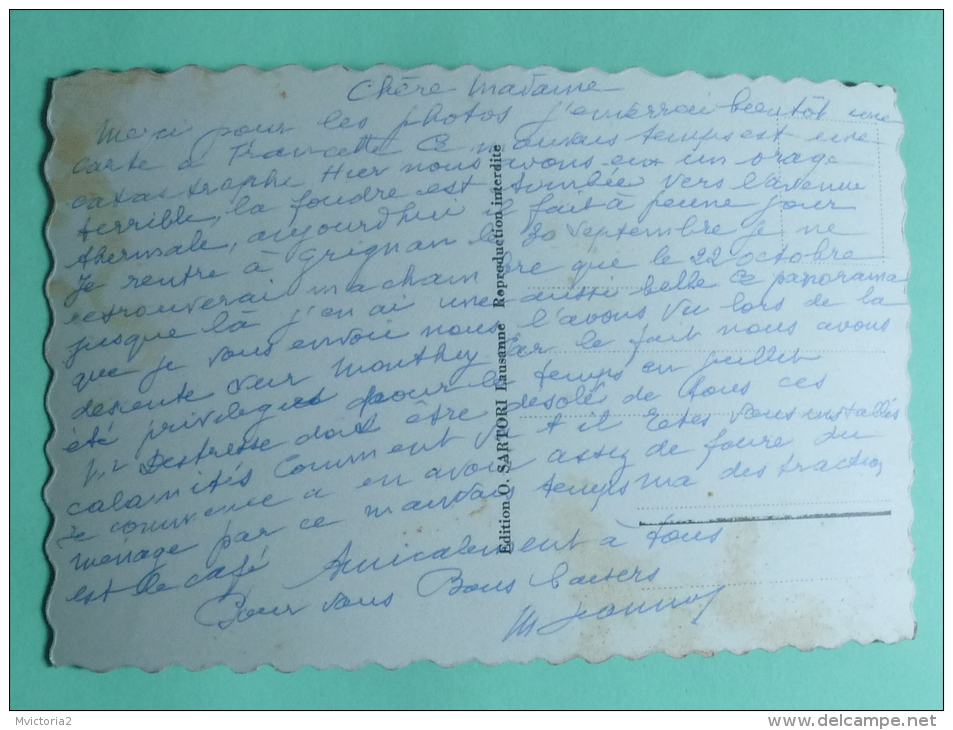 Chère Madame
Merci pour les photos j'enverrai bientôt une
carte à Francette Ce mauvais temps est une
catastrophe Hier nous avons eu un orage
terrible, la foudre est tombée vers l'avenue
thermale, aujourd'hui il fait à peine jour
Je rentre à Grignan le 30 septembre je ne
retrouverai ma chambre que le 22 octobre
jusque là j'en ai une aussi belle Ce panorama
que je vous envoie nous l'avons vu lors de la
descente sur Monthey Par le fait nous avons
été privilégiés pour le temps en juillet
Mr Destresse doit être désolé de tous ces
calamités Comment va t il Etes vous installés
Je commence a en avoir assez de faire du
ménage par ce mauvais temps ma destraction
est le café Amicalement à tous
Pour vous Bons baisers
M Jeannot
Edition O. SARTORI Lausanne Reproduction interdite
Mvictoria2
www.delcampe.net